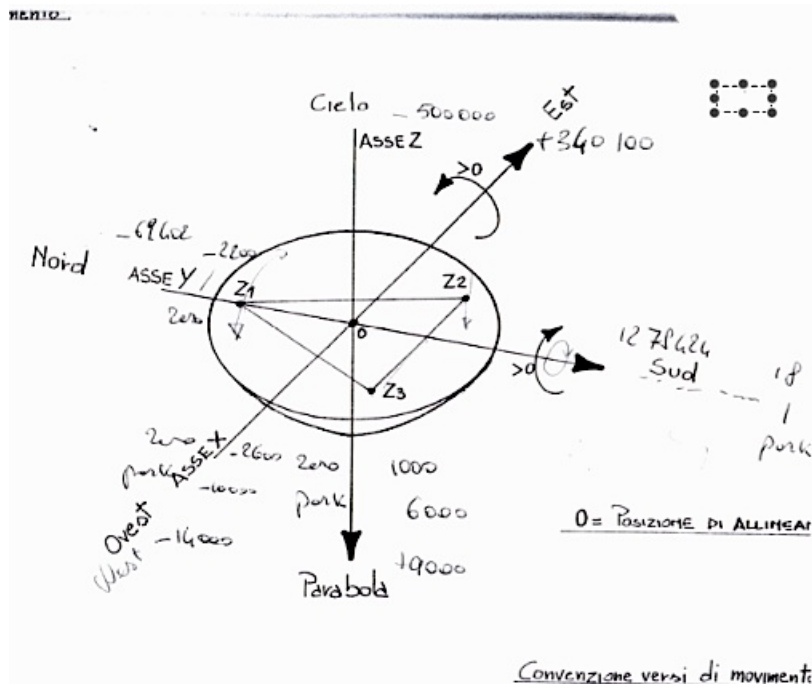 MENTO.
Cielo -500000
Est
+340 100
ASSE Z
>0
-69602
-2200
Nord
ASSE Y
Z1
Z2
zero
O
1278424
Sud
18
>0
park
Z3
zero
park
ASSE X
-2600
zero 1000
-10000
park 6000
Ovest
West
-14000
+9000
Parabola
O = POSIZIONE DI ALLINEAM
Convenzione versi di moviment